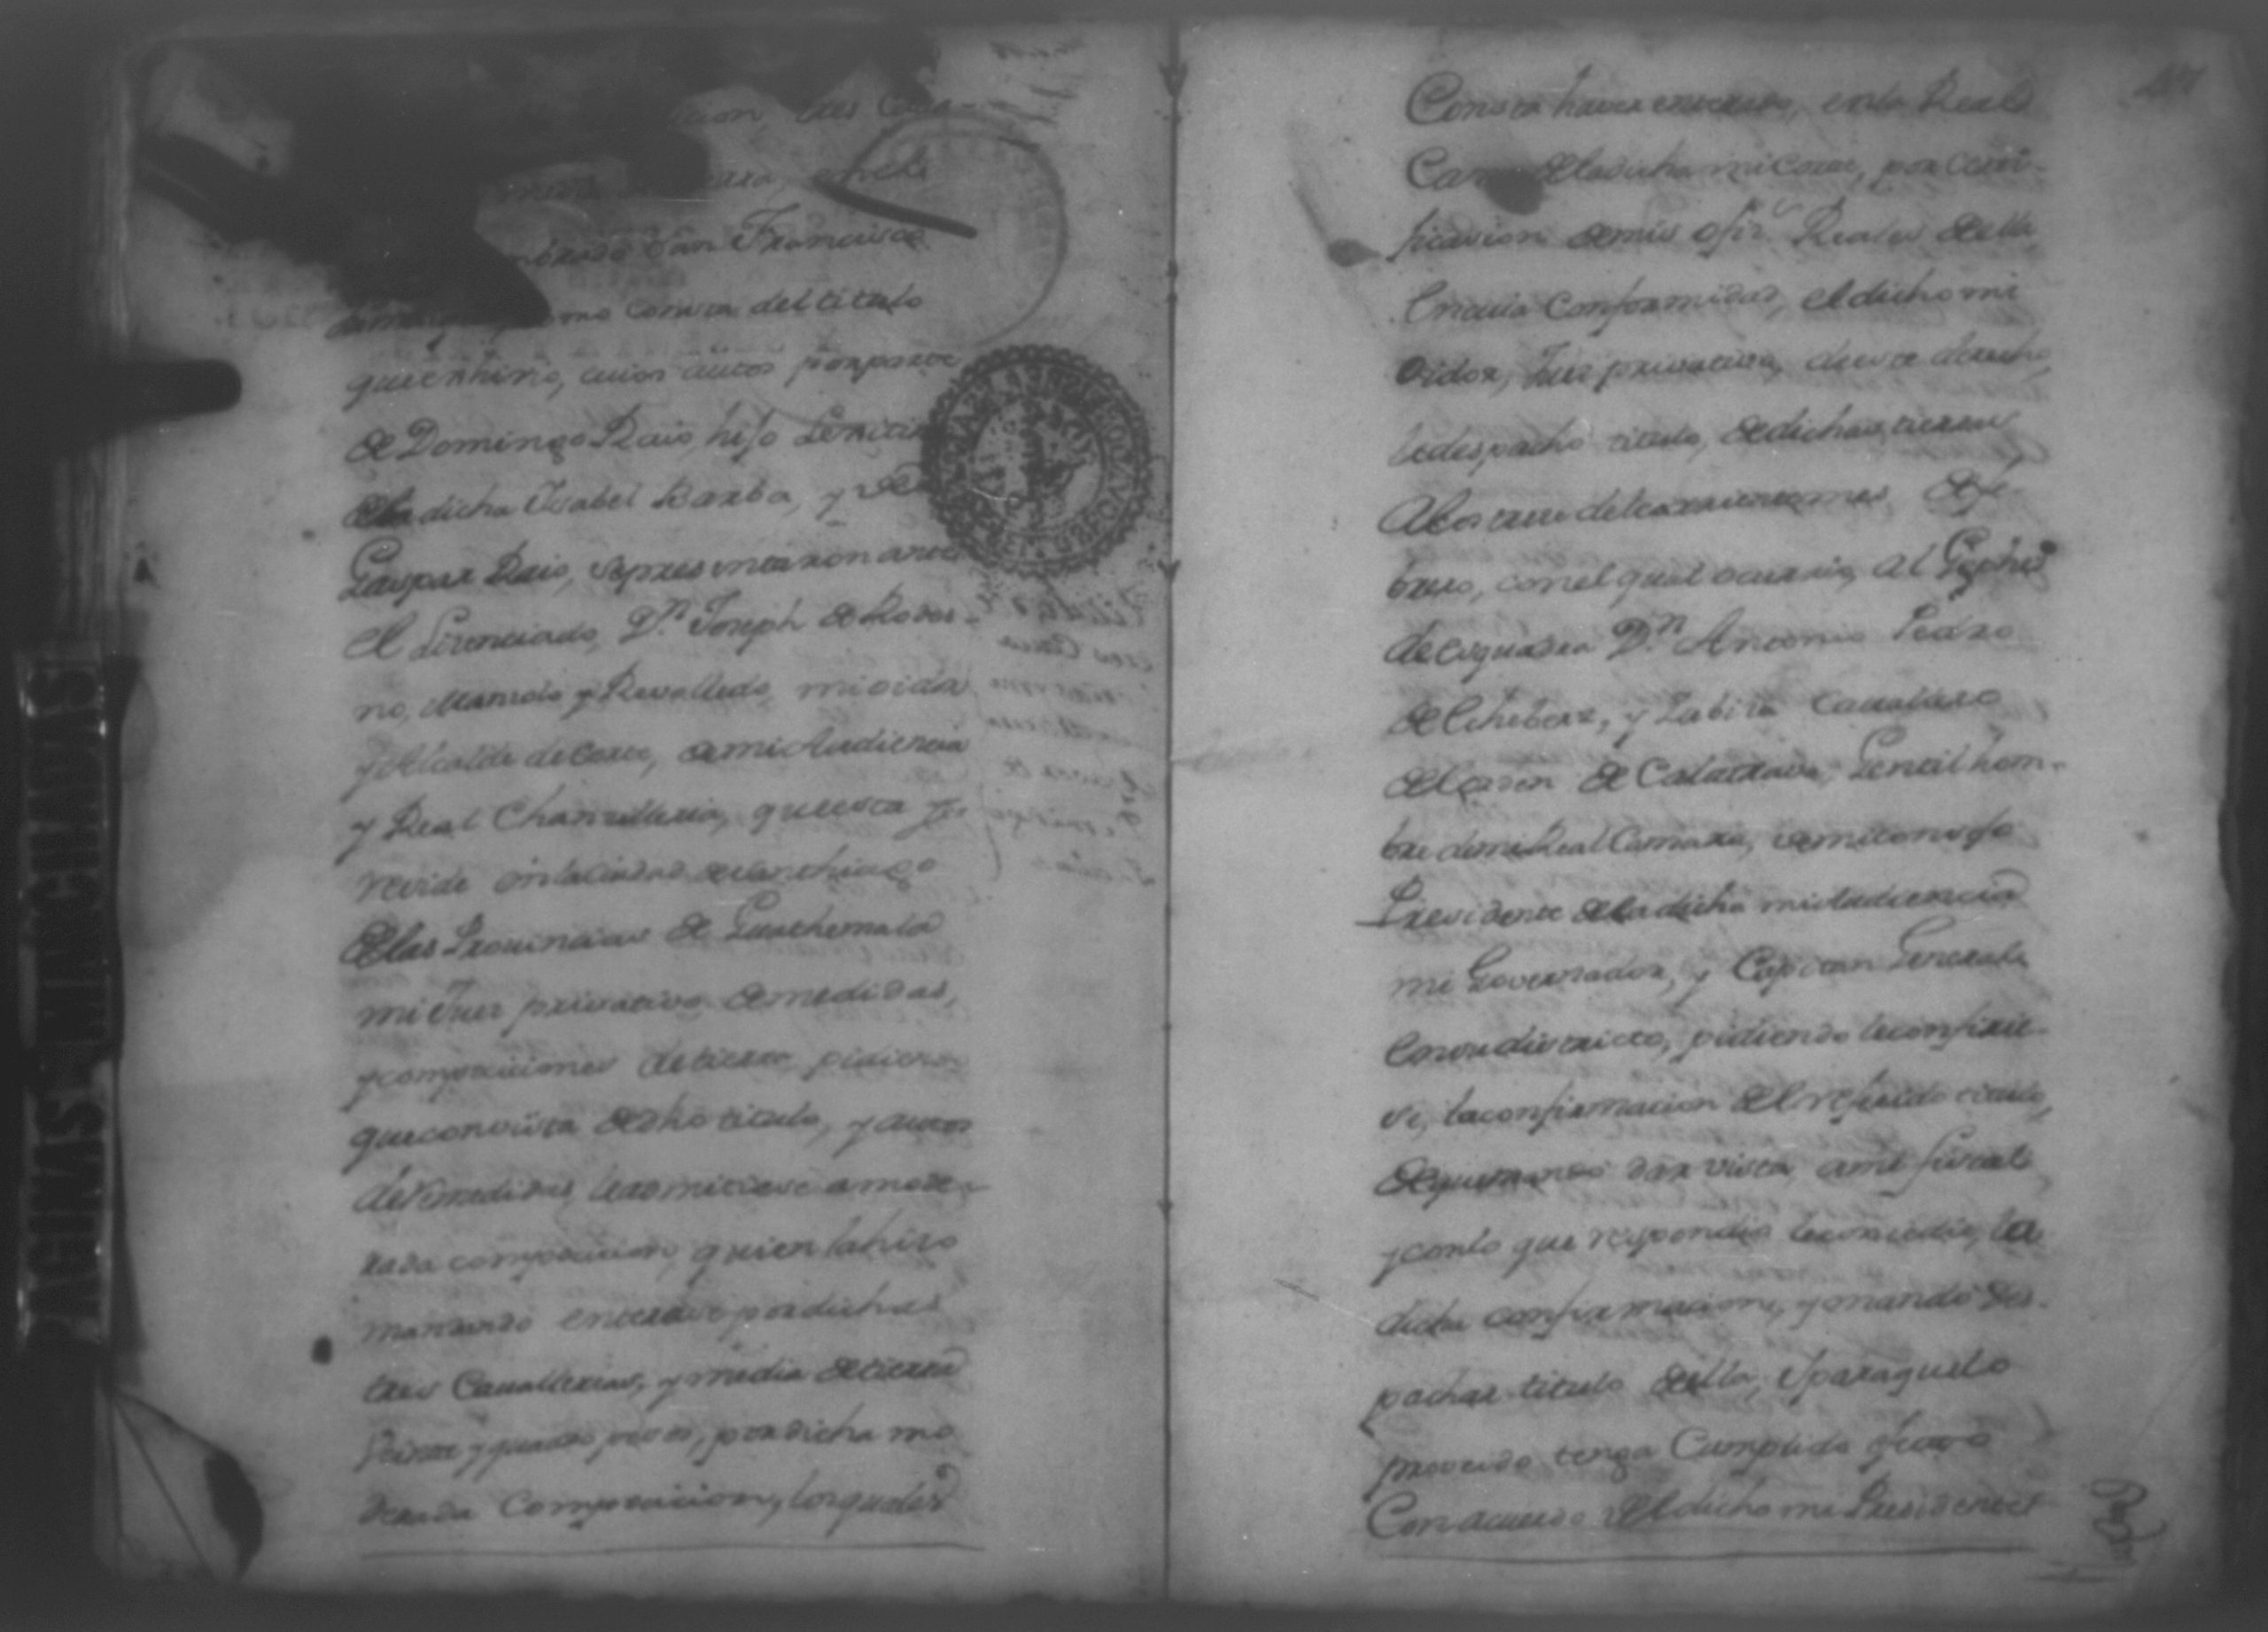 tres Caua-
en el
nbrado San Francisco
mo consta del titulo
que en hiño, cuios autos por parte
de Domingo Ruis, hijo Lexitim
de la dicha Isabel Barba, y de
Gaspar Ruis, se presentaron ante
el Licenciado, D.n Joseph de Rodes-
no, Manzolo y Revolledo, mi oidor
y Alcalde de Corte, de mi Audiencia
y Real Chancilleria, que esta y
reside en la ciudad de Santhiago
de las Provincias de Guathemala
mi Juez privativo de medidas,
y composiciones de tierra, pidiero
que con vista de dho titulo, y autos
de remedidas, le admitiese a mode-
rada composicion, quien la hizo
mandando enterase por dichas
tres Cauallerias, y media de tierra
Veinte y quatro pesos, por dicha mo
derada Composicion, los quales
Consta hauer enterado, en la Real
Caxa de la dicha mi Corte, por certi-
ficasion de mis ofis.s Reales de ella
En cuia Conformidad, el dicho mi
oidor, Juez privativo, de este derecho,
le despacho titulo, de dichas tierras
A los trese del corriente mes de fe-
brero, con el qual ocurrio, al Gephe
de esquadra D.n Antonio Pedro
de Echebers, y Subisa Cauallero
del orden de Calatraua, Gentil hom-
bre de mi Real Camara, de mi consejo
Presidente de la dicha mi Audiencia
mi Governador, y Capitan General
En su districto, pidiendo le confirie-
se, la confirmacion del referido titulo,
de que mando dar vista a mi fiscal
y con lo que respondio le concedio, la
dicha confirmacion, y mando des-
pachar titulo de ella, y para que lo
proveido tenga Cumplido efecto
Con acuerdo del dicho mi Presidente